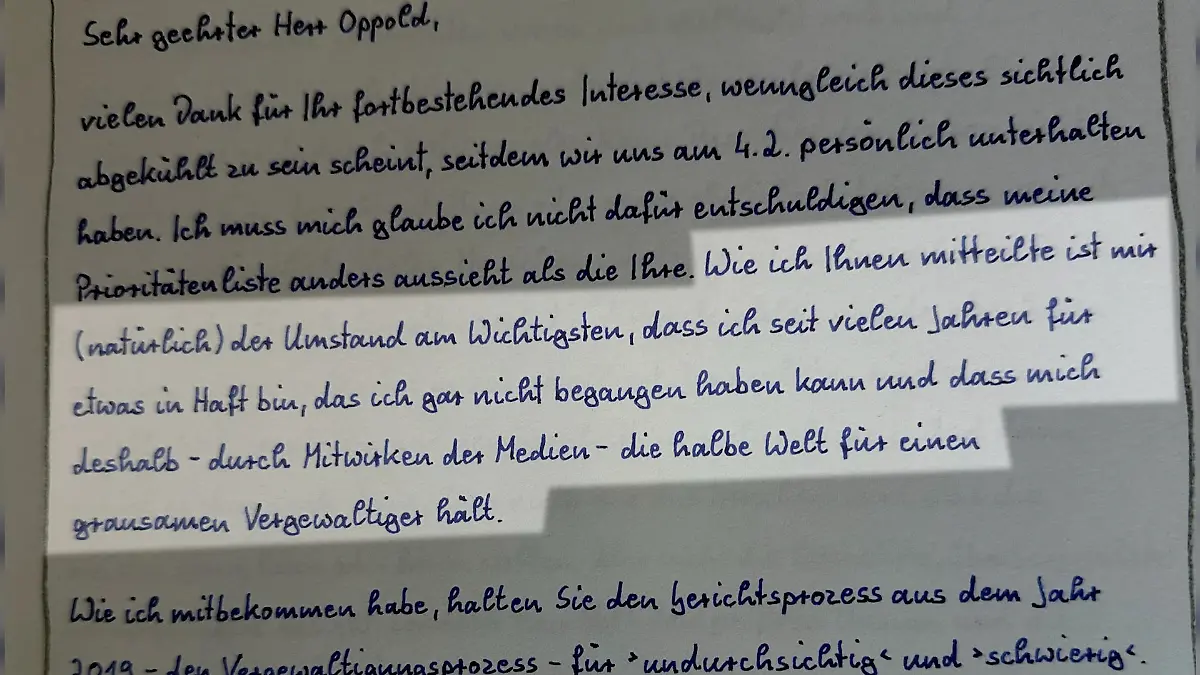 Sehr geehrter Herr Oppold,
vielen Dank für Ihr fortbestehendes Interesse, wenngleich dieses sichtlich
abgekühlt zu sein scheint, seitdem wir uns am 4.2. persönlich unterhalten
haben. Ich muss mich glaube ich nicht dafür entschuldigen, dass meine
Prioritätenliste anders aussieht als die Ihre. Wie ich Ihnen mitteilte ist mir
(natürlich) der Umstand am Wichtigsten, dass ich seit vielen Jahren für
etwas in Haft bin, das ich gar nicht begangen haben kann und dass mich
deshalb - durch Mitwirken der Medien - die halbe Welt für einen
grausamen Vergewaltiger hält.
Wie ich mitbekommen habe, halten Sie den Gerichtsprozess aus dem Jahr
2019 - den Vergewaltigungsprozess - für >undurchsichtig< und >schwierig<.